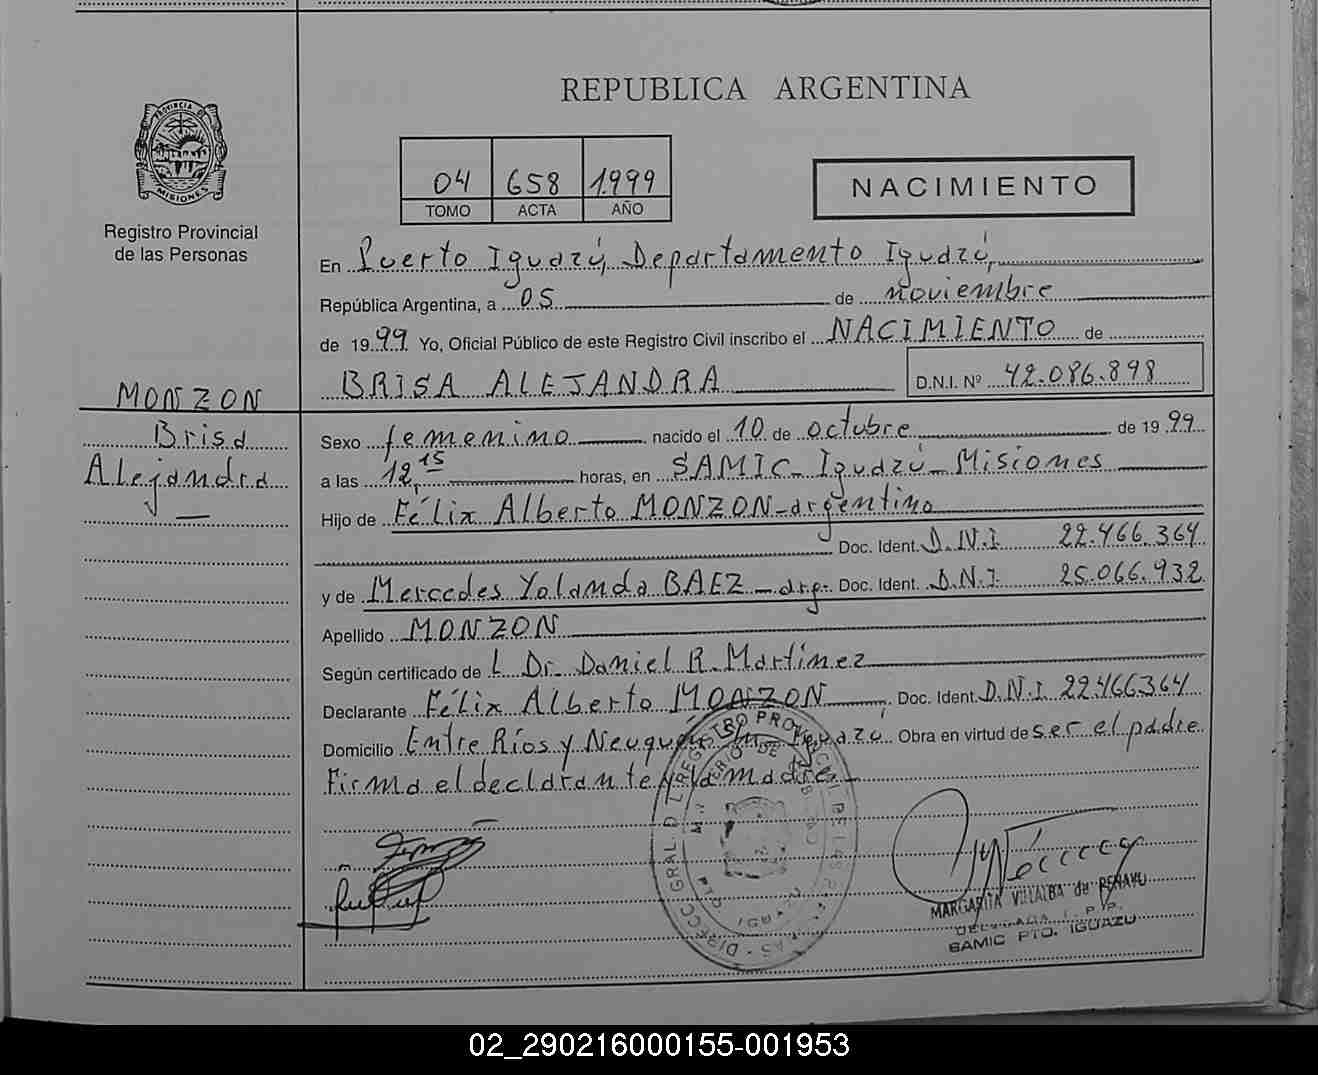 REPUBLICA ARGENTINA
PROVINCIA DE
MISIONES
Registro Provincial
de las Personas
04 658 1999
TOMO ACTA AÑO
NACIMIENTO
En Puerto Iguazú, Departamento Iguazú,
República Argentina, a 05 de noviembre
de 1999 Yo, Oficial Público de este Registro Civil inscribo el NACIMIENTO de
BRISA ALEJANDRA D.N.I. Nº 42.086.898
MONZON
Brisa
Alejandra
Sexo femenino nacido el 10 de octubre de 1999
a las 12,15 horas, en SAMIC - Iguazú - Misiones
Hijo de Félix Alberto MONZON - argentino
Doc. Ident. D.N.I 22.466.364
y de Mercedes Yolanda BAEZ - arg. Doc. Ident. D.N.I. 25.066.932
Apellido MONZON
Según certificado de L Dr. Daniel R. Martínez
Declarante Félix Alberto MONZON Doc. Ident. D.N.I. 22466364
Domicilio Entre Ríos y Neuquén Iguazú Obra en virtud de ser el padre
Firma el declarante y la madre -
MARGARITA VILLALBA de
SAMIC PTO. IGUAZU
02_290216000155-001953